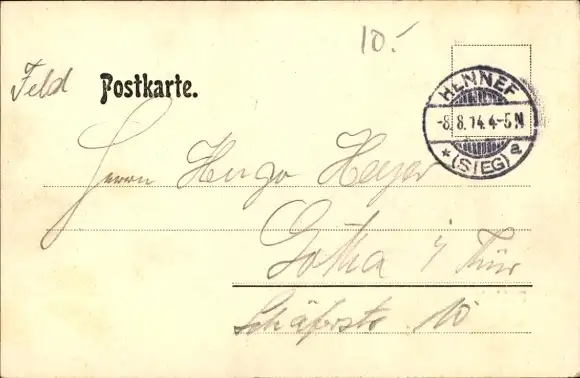 10.-
Feld Postkarte.
HENNEF
-8.8.14.4-5N
* (SIEG) a
Herrn Hugo Heyer
Gotha i Thür
Schäferstr 10